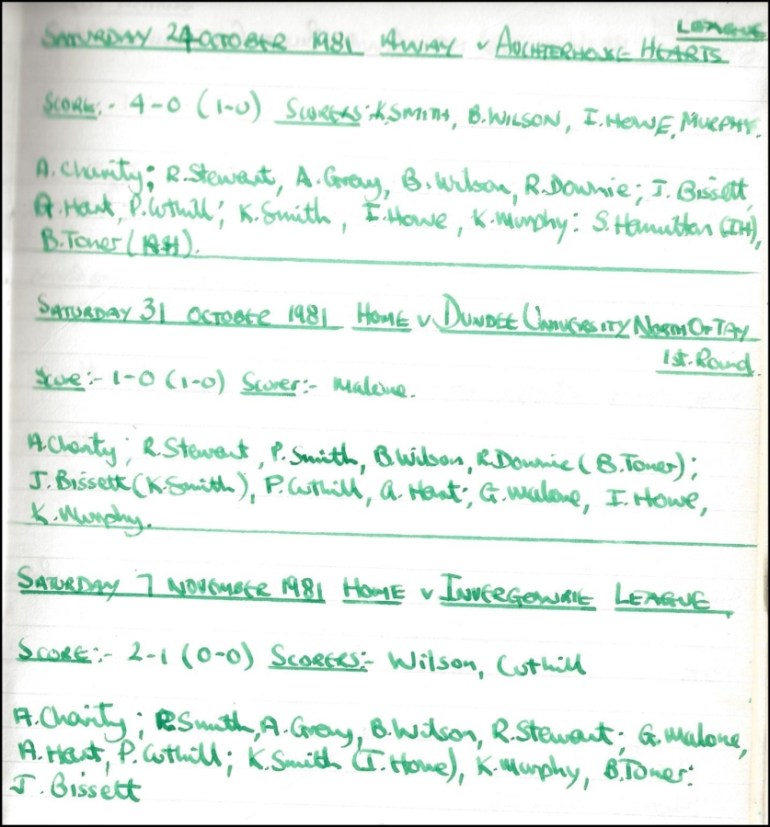 LEAGUE
SATURDAY 24 OCTOBER 1981 AWAY v AUCHTERHOUSE HEARTS
SCORE:- 4-0 (1-0) SCORERS:- K.SMITH, B.WILSON, I.HOWE, MURPHY.
A.Charity; R.Stewart, A.Gray, B.Wilson, R.Downie; J.Bissett,
A.Hart, P.Cuthill; K.Smith, I.Howe, K.Murphy: S.Hamilton (IH),
B.Toner (AH).
SATURDAY 31 OCTOBER 1981 HOME v DUNDEE UNIVERSITY NORTH OF TAY
1st. Round.
Score:- 1-0 (1-0) Scorer:- Malone.
A.Charity; R.Stewart, P.Smith, B.Wilson, R.Downie (B.Toner);
J.Bissett (K.Smith), P.Cuthill, A.Hart; G.Malone, I.Howe,
K.Murphy.
SATURDAY 7 NOVEMBER 1981 HOME v INVERGOWRIE LEAGUE
SCORE:- 2-1 (0-0) SCORERS:- Wilson, Cuthill
A.Charity; P.Smith, A.Gray, B.Wilson, R.Stewart; G.Malone,
A.Hart, P.Cuthill; K.Smith (I.Howe), K.Murphy, B.Toner:
J.Bissett